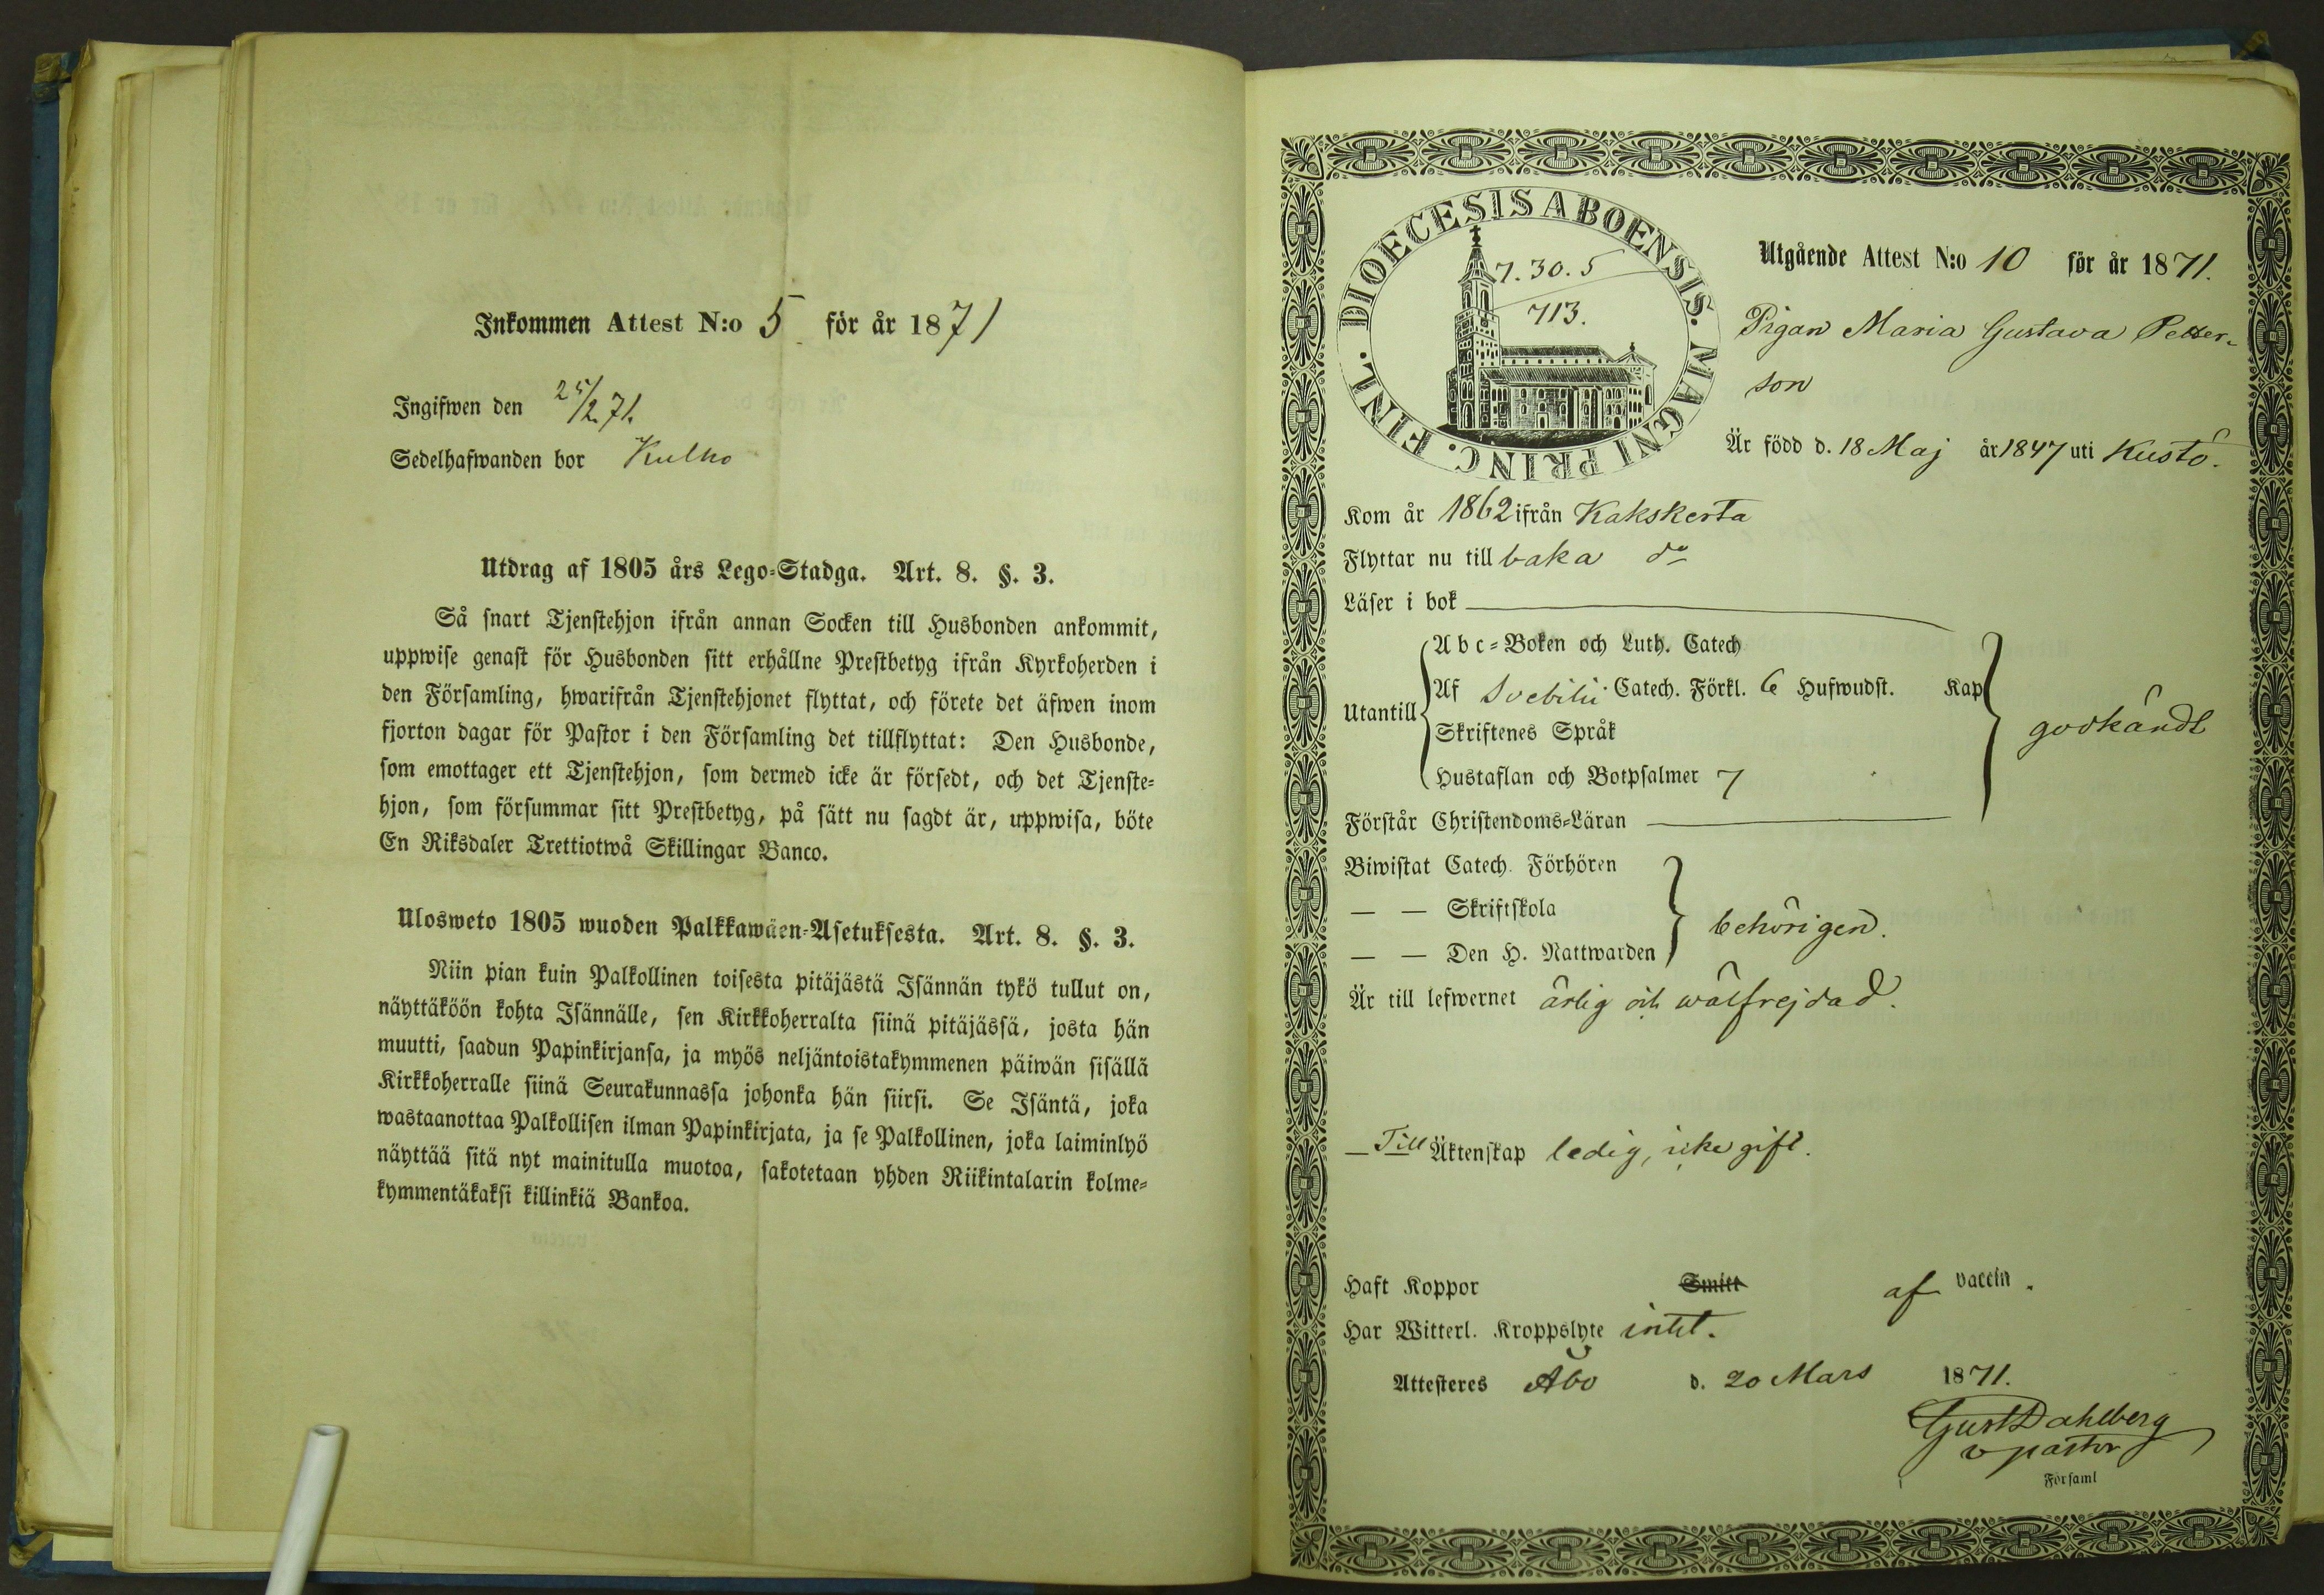 Inkommen Attest N:o 5 för år 1871
Ingifwen den 25/2 71.
Sedelhafwanden bor Kulho
Utdrag af 1805 års Lego-Stadga. Art. 8. §. 3.
Så snart Tjenstehjon ifrån annan Socken till Husbonden ankommit,
uppwise genast för Husbonden sitt erhållne Prestbetyg ifrån Kyrkoherden i
den Församling, hwarifrån Tjenstehjonet flyttat, och förete det äfwen inom
fjorton dagar för Pastor i den Församling det tillflyttat: Den Husbonde,
som emottager ett Tjenstehjon, som dermed icke är försedt, och det Tjenste-
hjon, som försummar sitt Prestbetyg, på sätt nu sagdt är, uppwisa, böte
En Riksdaler Trettiotwå Skillingar Banco.
Ulosweto 1805 wuoden Palkkawäen-Asetuksesta. Art. 8. §. 3.
Niin pian kuin Palkollinen toisesta pitäjästä Isännän tykö tullut on,
näyttäköön kohta Isännälle, sen Kirkkoherralta siinä pitäjässä, josta hän
muutti, saadun Papinkirjansa, ja myös neljäntoistakymmenen päiwän sisällä
Kirkkoherralle siinä Seurakunnassa johonka hän siirsi. Se Isäntä, joka
wastaanottaa Palkollisen ilman Papinkirjata, ja se Palkollinen, joka laiminlyö
näyttää sitä nyt mainitulla muotoa, sakotetaan yhden Riikintalarin kolme-
kymmentäkaksi killinkiä Bankoa.
DIOECESIS ABOENSIS. MAGNI PRINC. FINL.
7.30.5
713.
Utgående Attest N:o 10 för år 1871.
Pigan Maria Gustava Petter-
son
Är född d. 18 Maj år 1847 uti Kustö.
Kom år 1862 ifrån Kakskerta
Flyttar nu till baka do
Läser i bok
Utantill
Abc-Boken och Luth. Catech
Af Svebilii Catech. Förkl. 6 Hufwudst. Kap
Skriftenes Språk
Hustaflan och Botpsalmer 7
godkändt
Förstår Christendoms-Läran
Biwistat Catech. Förhören
— — Skriftskola
— — Den H. Nattwarden
behörigen.
Är till lefwernet ärlig och wälfrejdad.
— Till Äktenskap ledig, icke gift.
Haft Koppor Smitt af vaccin.
Har Witterl. Kroppslyte intet.
Attesteres Åbo d. 20 Mars 1871.
Gust Dahlberg
v pastor
Församl